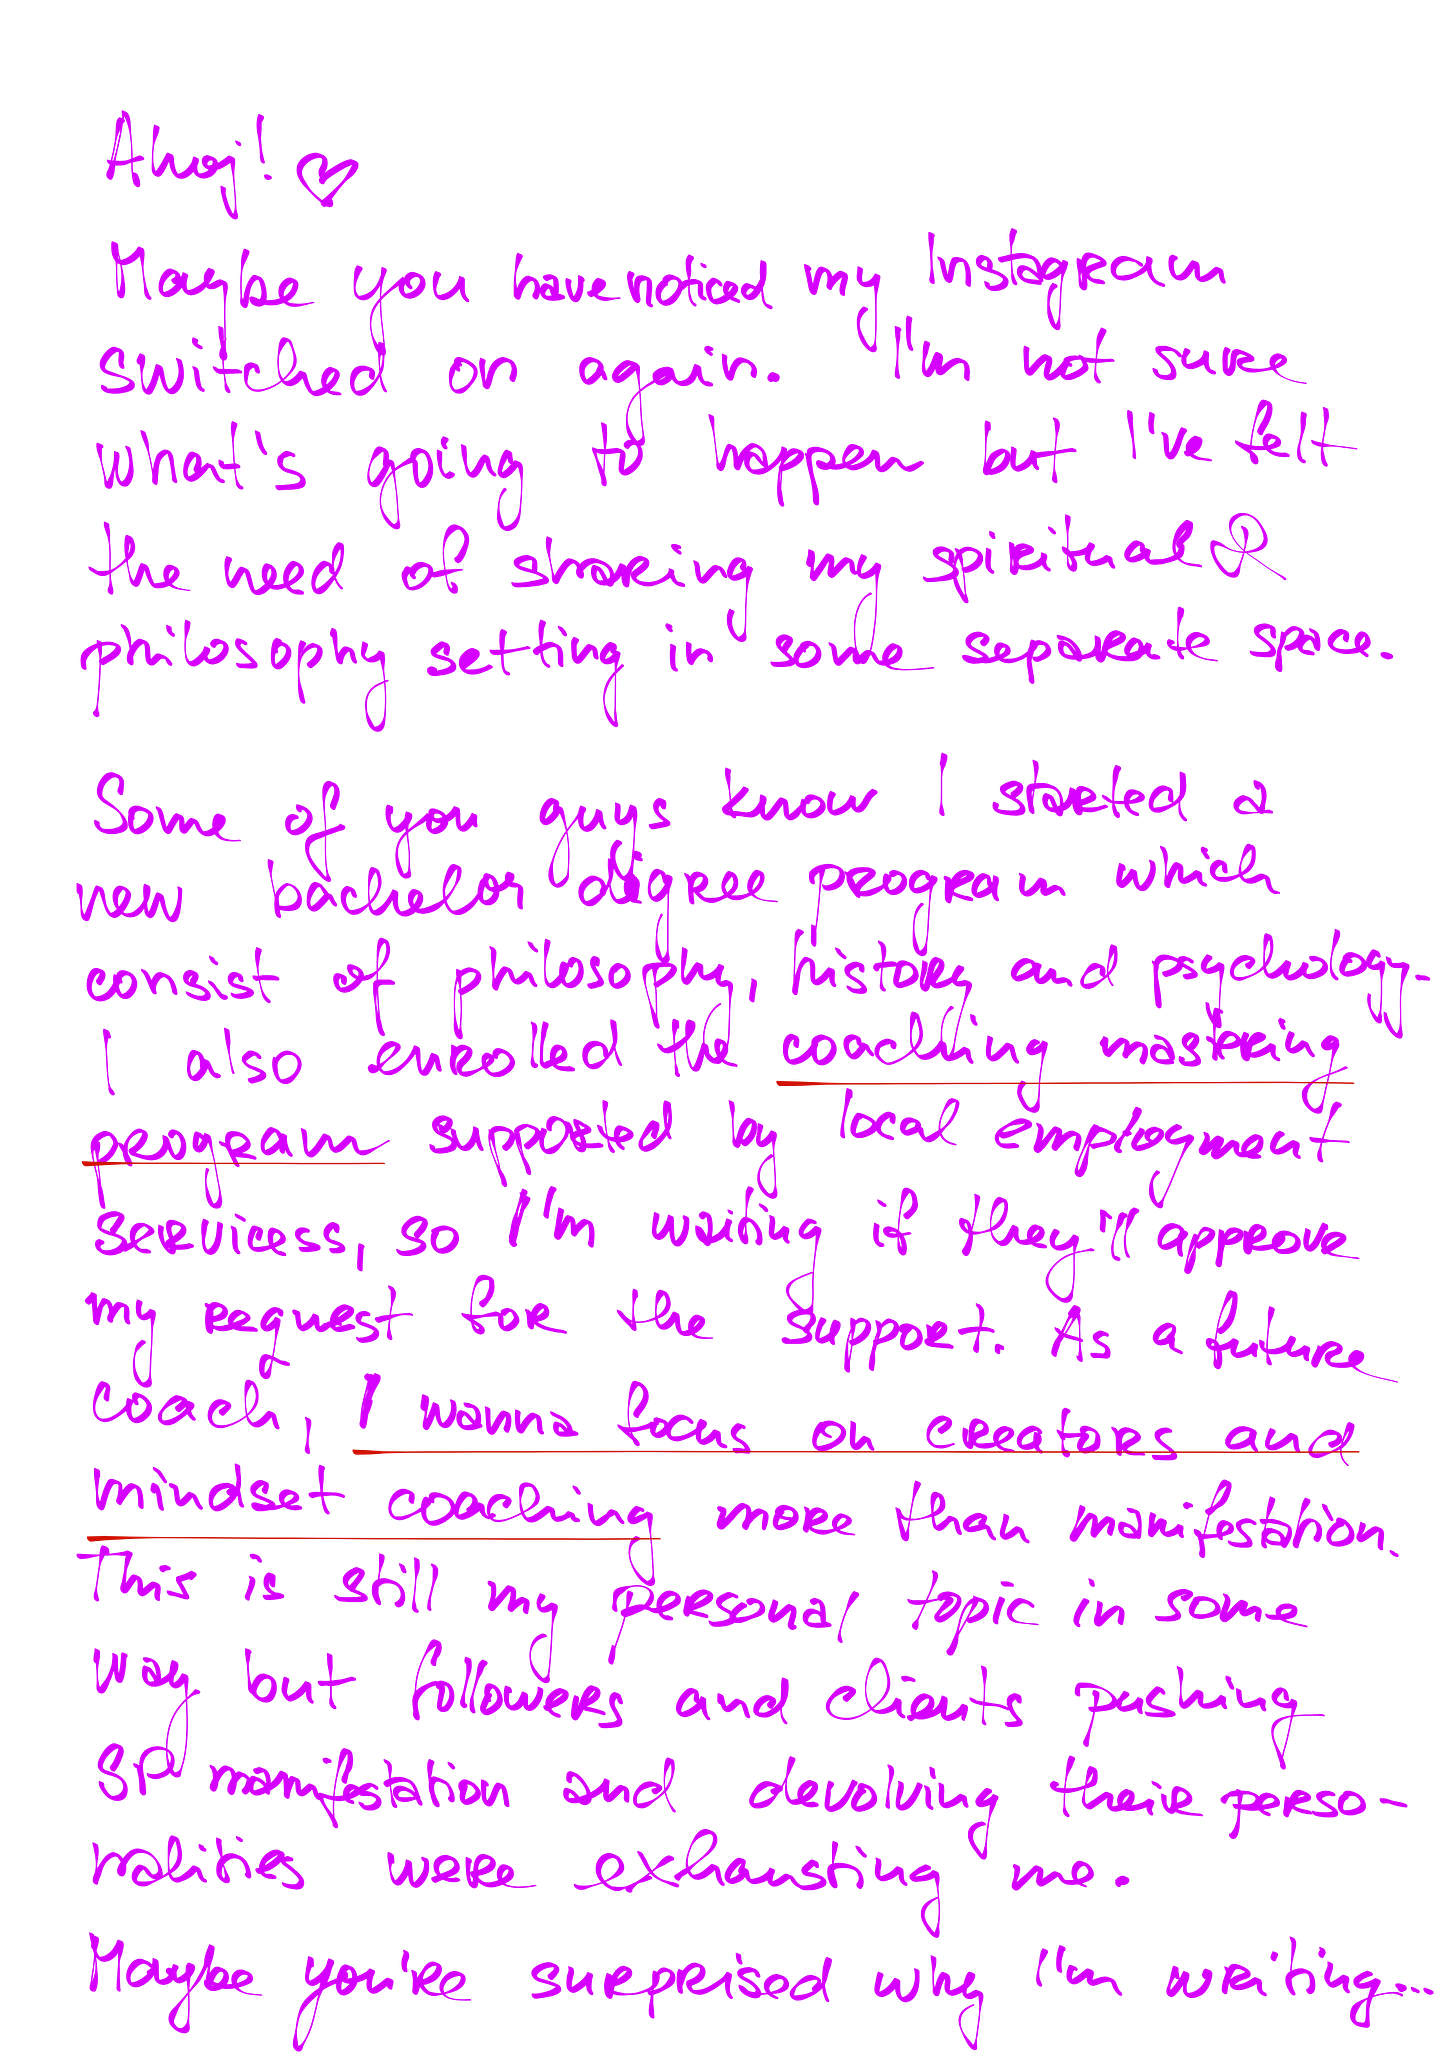 Ahoj! ♡
Maybe you have noticed my Instagram
switched on again. I'm not sure
what's going to happen but I've felt
the need of sharing my spiritual &
philosophy setting in some separate space.
Some of you guys know I started a
new bachelor degree program which
consist of philosophy, history and psychology.
I also enrolled the coaching mastring
program supported by local employment
servicess, so I'm waiting if they'll approve
my request for the support. As a future
coach, I wanna focus on creators and
mindset coaching more than manifestation.
This is still my personal topic in some
way but followers and clients pushing
SP manifestation and devolving their perso-
nalities were exhausting me.
Maybe you're surprised why I'm writing...